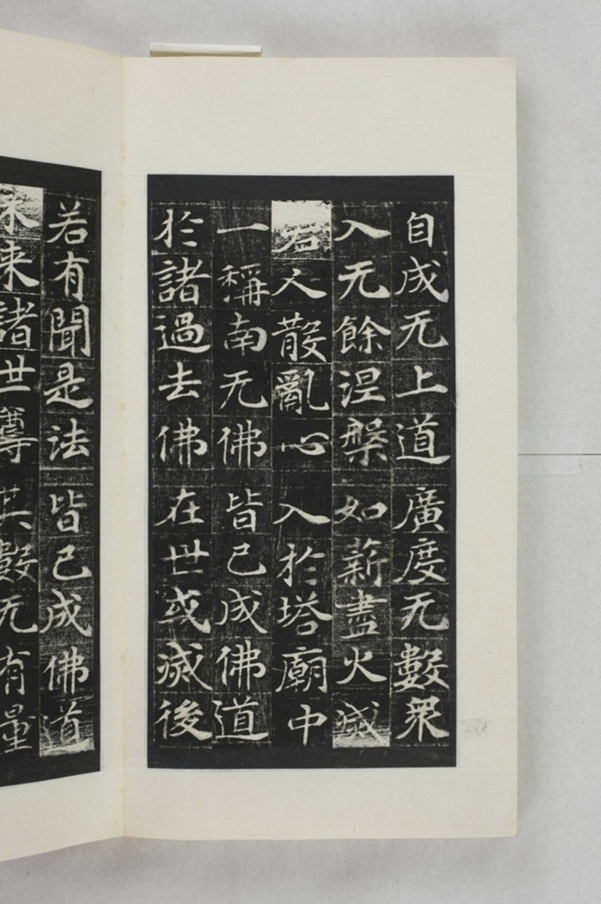 自成无上道廣度无數衆
入无餘涅槃如薪盡火滅
若人散亂心入於塔廟中
一稱南无佛皆已成佛道
於諸過去佛在世或滅後
若有聞是法皆已成佛道
未来諸世尊其數无有量